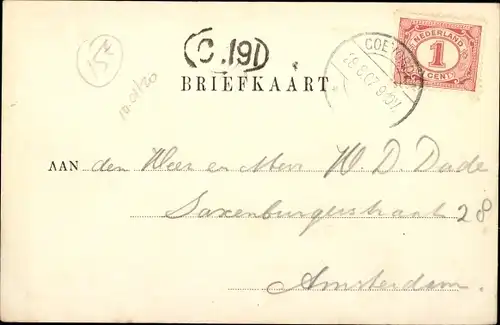 15
C.191
10.01/20
BRIEFKAART
NEDERLAND
1
CENT
AAN den Heer en Mevr W. D. Dade
Saxenburgerstraat 28
Amsterdam.